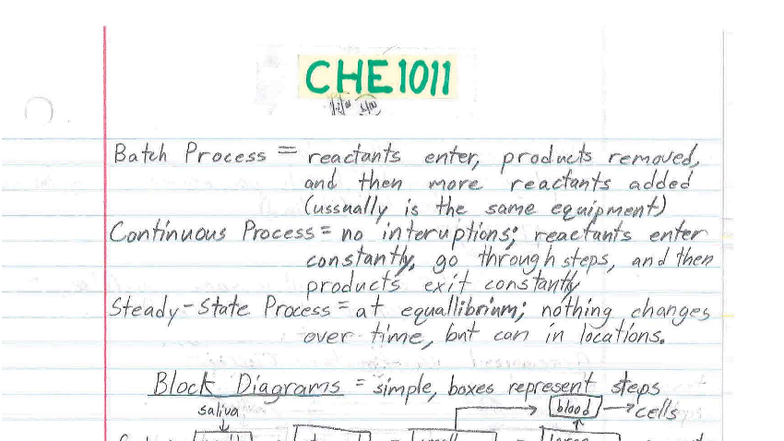 CHE 1011
Batch Process = reactants enter, products removed,
and then more reactants added
(ussually is the same equipment)
Continuous Process = no interuptions; reactants enter
constantly, go through steps, and then
products exit constantly
Steady-State Process = at equallibrium; nothing changes
over time, but can in locations.
Block Diagrams = simple, boxes represent steps
saliva
blood → cells